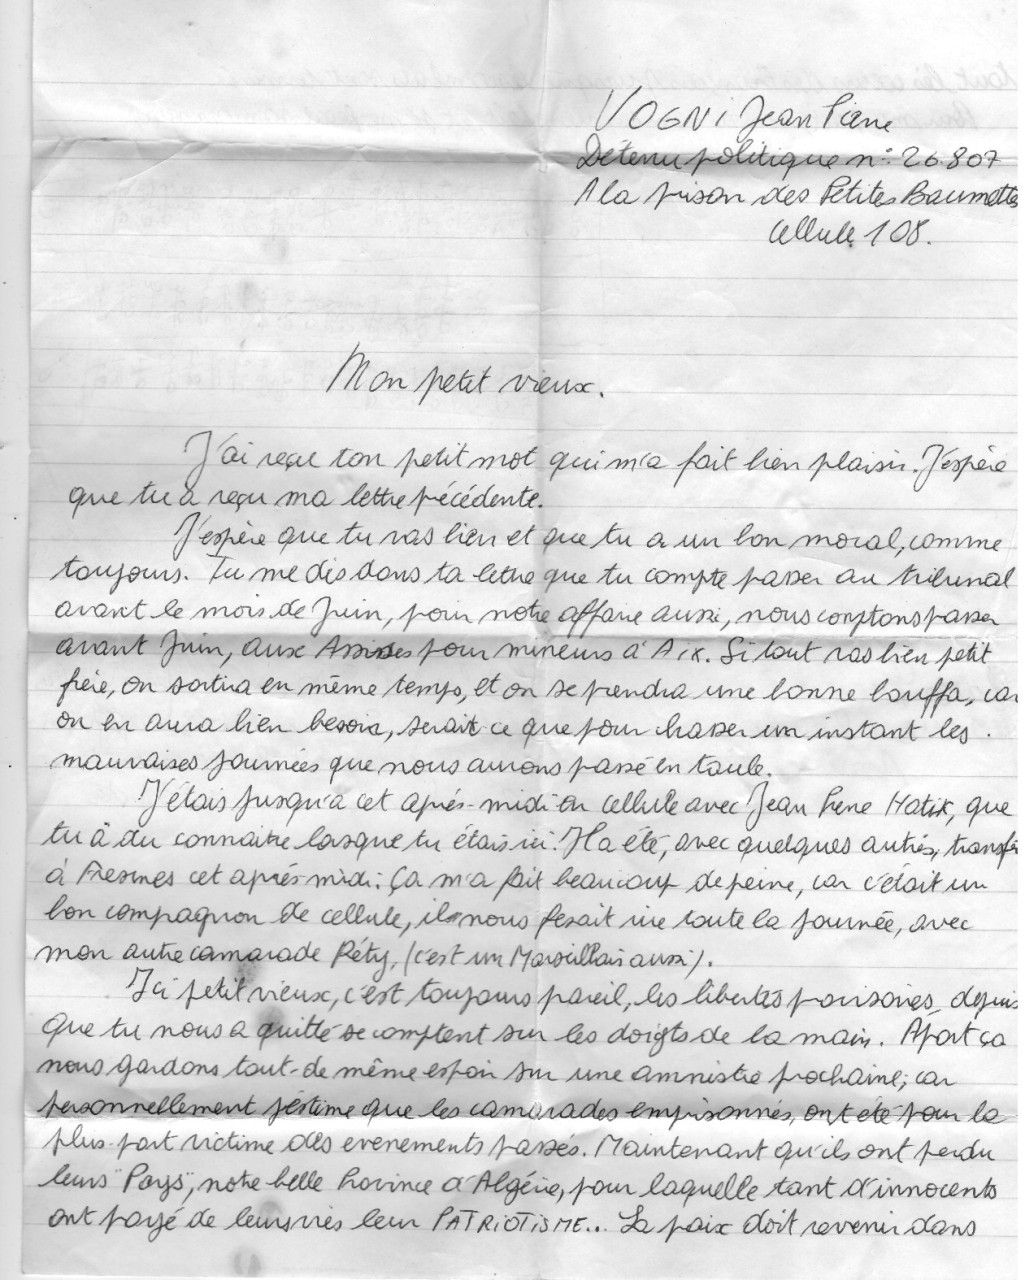 VOGNI Jean Pierre
Détenu politique n° 26.807
A la prison des Petites Baumettes
Cellule 108.
Mon petit vieux.
J'ai reçue ton petit mot qui m'a fait bien plaisir. J'espère
que tu a reçu ma lettre précédente.
J'espère que tu vas bien et que tu a un bon moral, comme
toujours. Tu me dis dans ta lettre que tu compte passer au tribunal
avant le mois de Juin, pour notre affaire aussi, nous comptons passer
avant Juin, aux Assises pour mineurs à Aix. Si tout vas bien petit
frère, on sortira en même temps, et on se prendra une bonne bouffa, car
on en aura bien besoin, serait ce que pour chasser un instant les
mauvaises journées que nous aurons passé en taule.
J'étais jusqu'a cet après-midi en cellule avec Jean Pierre Hatik, que
tu â du connaitre lorsque tu étais ici. Il a été, avec quelques autres, transfé
à Fresnes cet après-midi. Ça m'a fait beaucoup de peine, car c'était un
bon compagnon de cellule, il nous fesait rire toute la journée, avec
mon autre camarade Réty, (c'est un Marseillais aussi).
Ici petit vieux, c'est toujours pareil, les libertés provisoires, depuis
que tu nous a quitté se comptent sur les doigts de la main. Apart ça
nous gardons tout-de même espoir sur une amnistie prochaine, car
personnellement j'éstime que les camarades emprisonnés, ont été pour la
plus part victime des evenements passés. Maintenant qu'ils ont perdu
leurs "Pays", notre belle Province d'Algérie, pour laquelle tant d'innocents
ont payé de leurs vies leur PATRIOTISME... La paix doit revenir dans